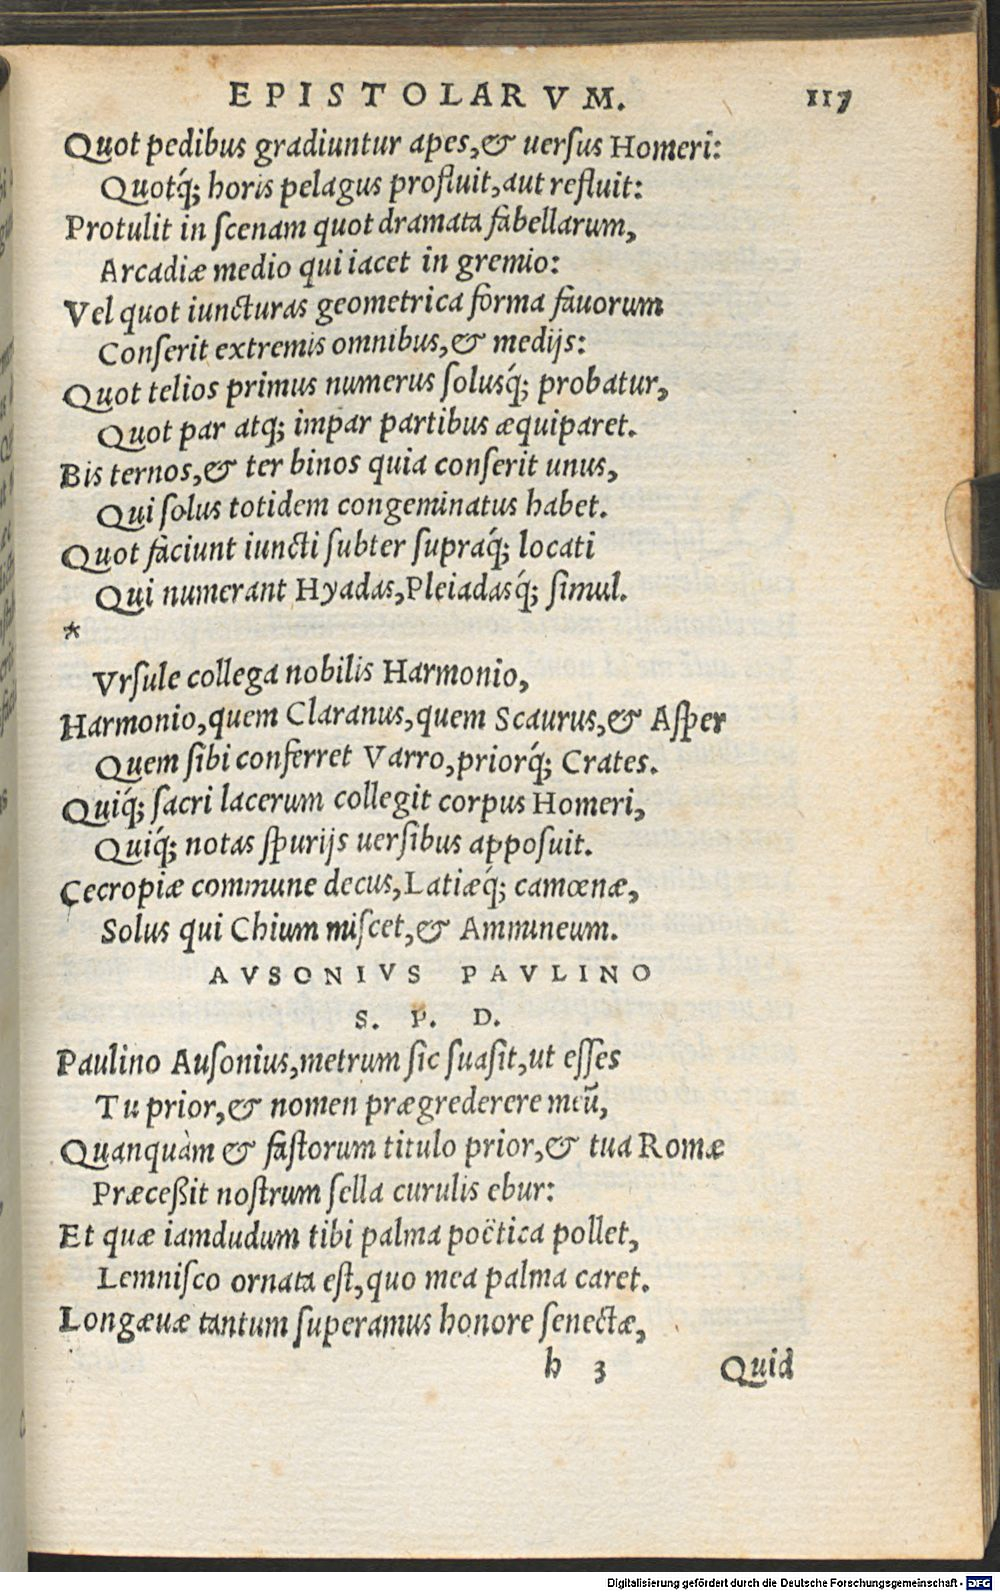 EPISTOLARVM. 117
Quot pedibus gradiuntur apes, & uersus Homeri:
Quotq́; horis pelagus profluit, aut refluit:
Protulit in scenam quot dramata fabellarum,
Arcadiæ medio qui iacet in gremio:
Vel quot iuncturas geometrica forma fauorum
Conserit extremis omnibus, & medijs:
Quot telios primus numerus solusq́; probatur,
Quot par atq; impar partibus æquiparet.
Bis ternos, & ter binos quia conserit unus,
Qui solus totidem congeminatus habet.
Quot faciunt iuncti subter supraq́; locati
Qui numerant Hyadas, Pleiadasq́; simul.
*
Vrsule collega nobilis Harmonio,
Harmonio, quem Claranus, quem Scaurus, & Asper
Quem sibi conferret Varro, priorq́; Crates.
Quiq́; sacri lacerum collegit corpus Homeri,
Quiq́; notas spurijs uersibus apposuit.
Cecropiæ commune decus, Latiæq́; camœnæ,
Solus qui Chium miscet, & Ammineum.
AVSONIVS PAVLINO
S. P. D.
Paulino Ausonius, metrum sic suasit, ut esses
Tu prior, & nomen prægrederere meū,
Quanquàm & fastorum titulo prior, & tua Romæ
Præceßit nostrum sella curulis ebur:
Et quæ iamdudum tibi palma poëtica pollet,
Lemnisco ornata est, quo mea palma caret.
Longæuæ tantum superamus honore senectæ,
h 3 Quid
Digitalisierung gefördert durch die Deutsche Forschungsgemeinschaft - DFG